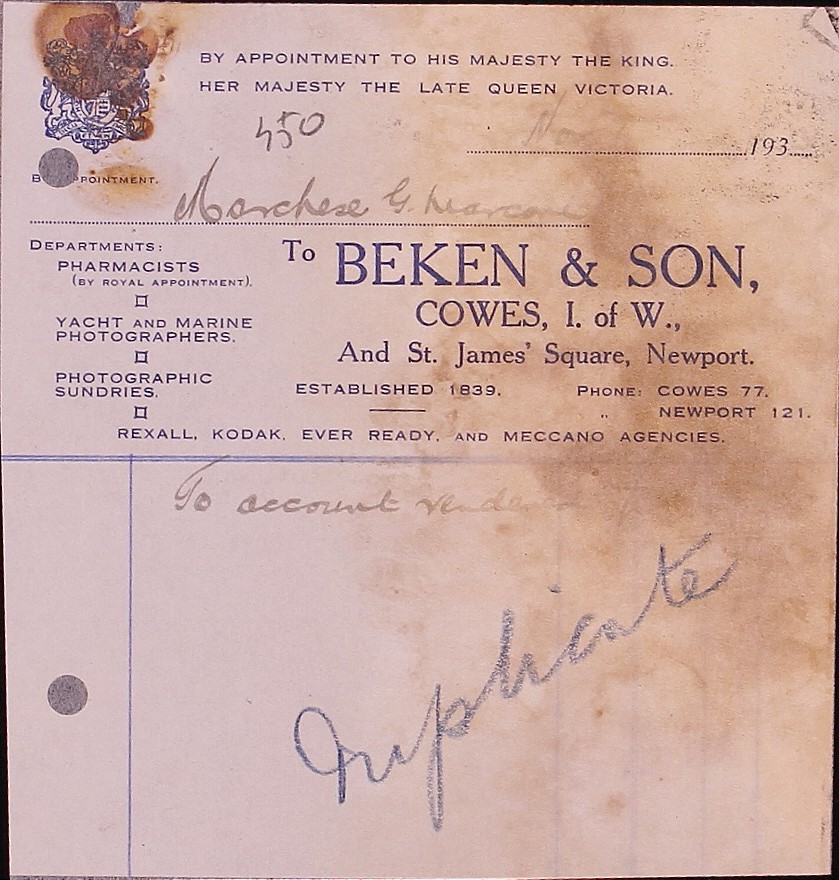 BY APPOINTMENT TO HIS MAJESTY THE KING.
HER MAJESTY THE LATE QUEEN VICTORIA.
450
193
B POINTMENT.
Marchese G. Marconi
DEPARTMENTS:
PHARMACISTS
(BY ROYAL APPOINTMENT).
YACHT AND MARINE
PHOTOGRAPHERS.
PHOTOGRAPHIC
SUNDRIES.
To BEKEN & SON,
COWES, I. of W.,
And St. James' Square, Newport.
ESTABLISHED 1839. PHONE: COWES 77.
„ NEWPORT 121.
REXALL, KODAK, EVER READY, AND MECCANO AGENCIES.
To account rendered
Duplicate